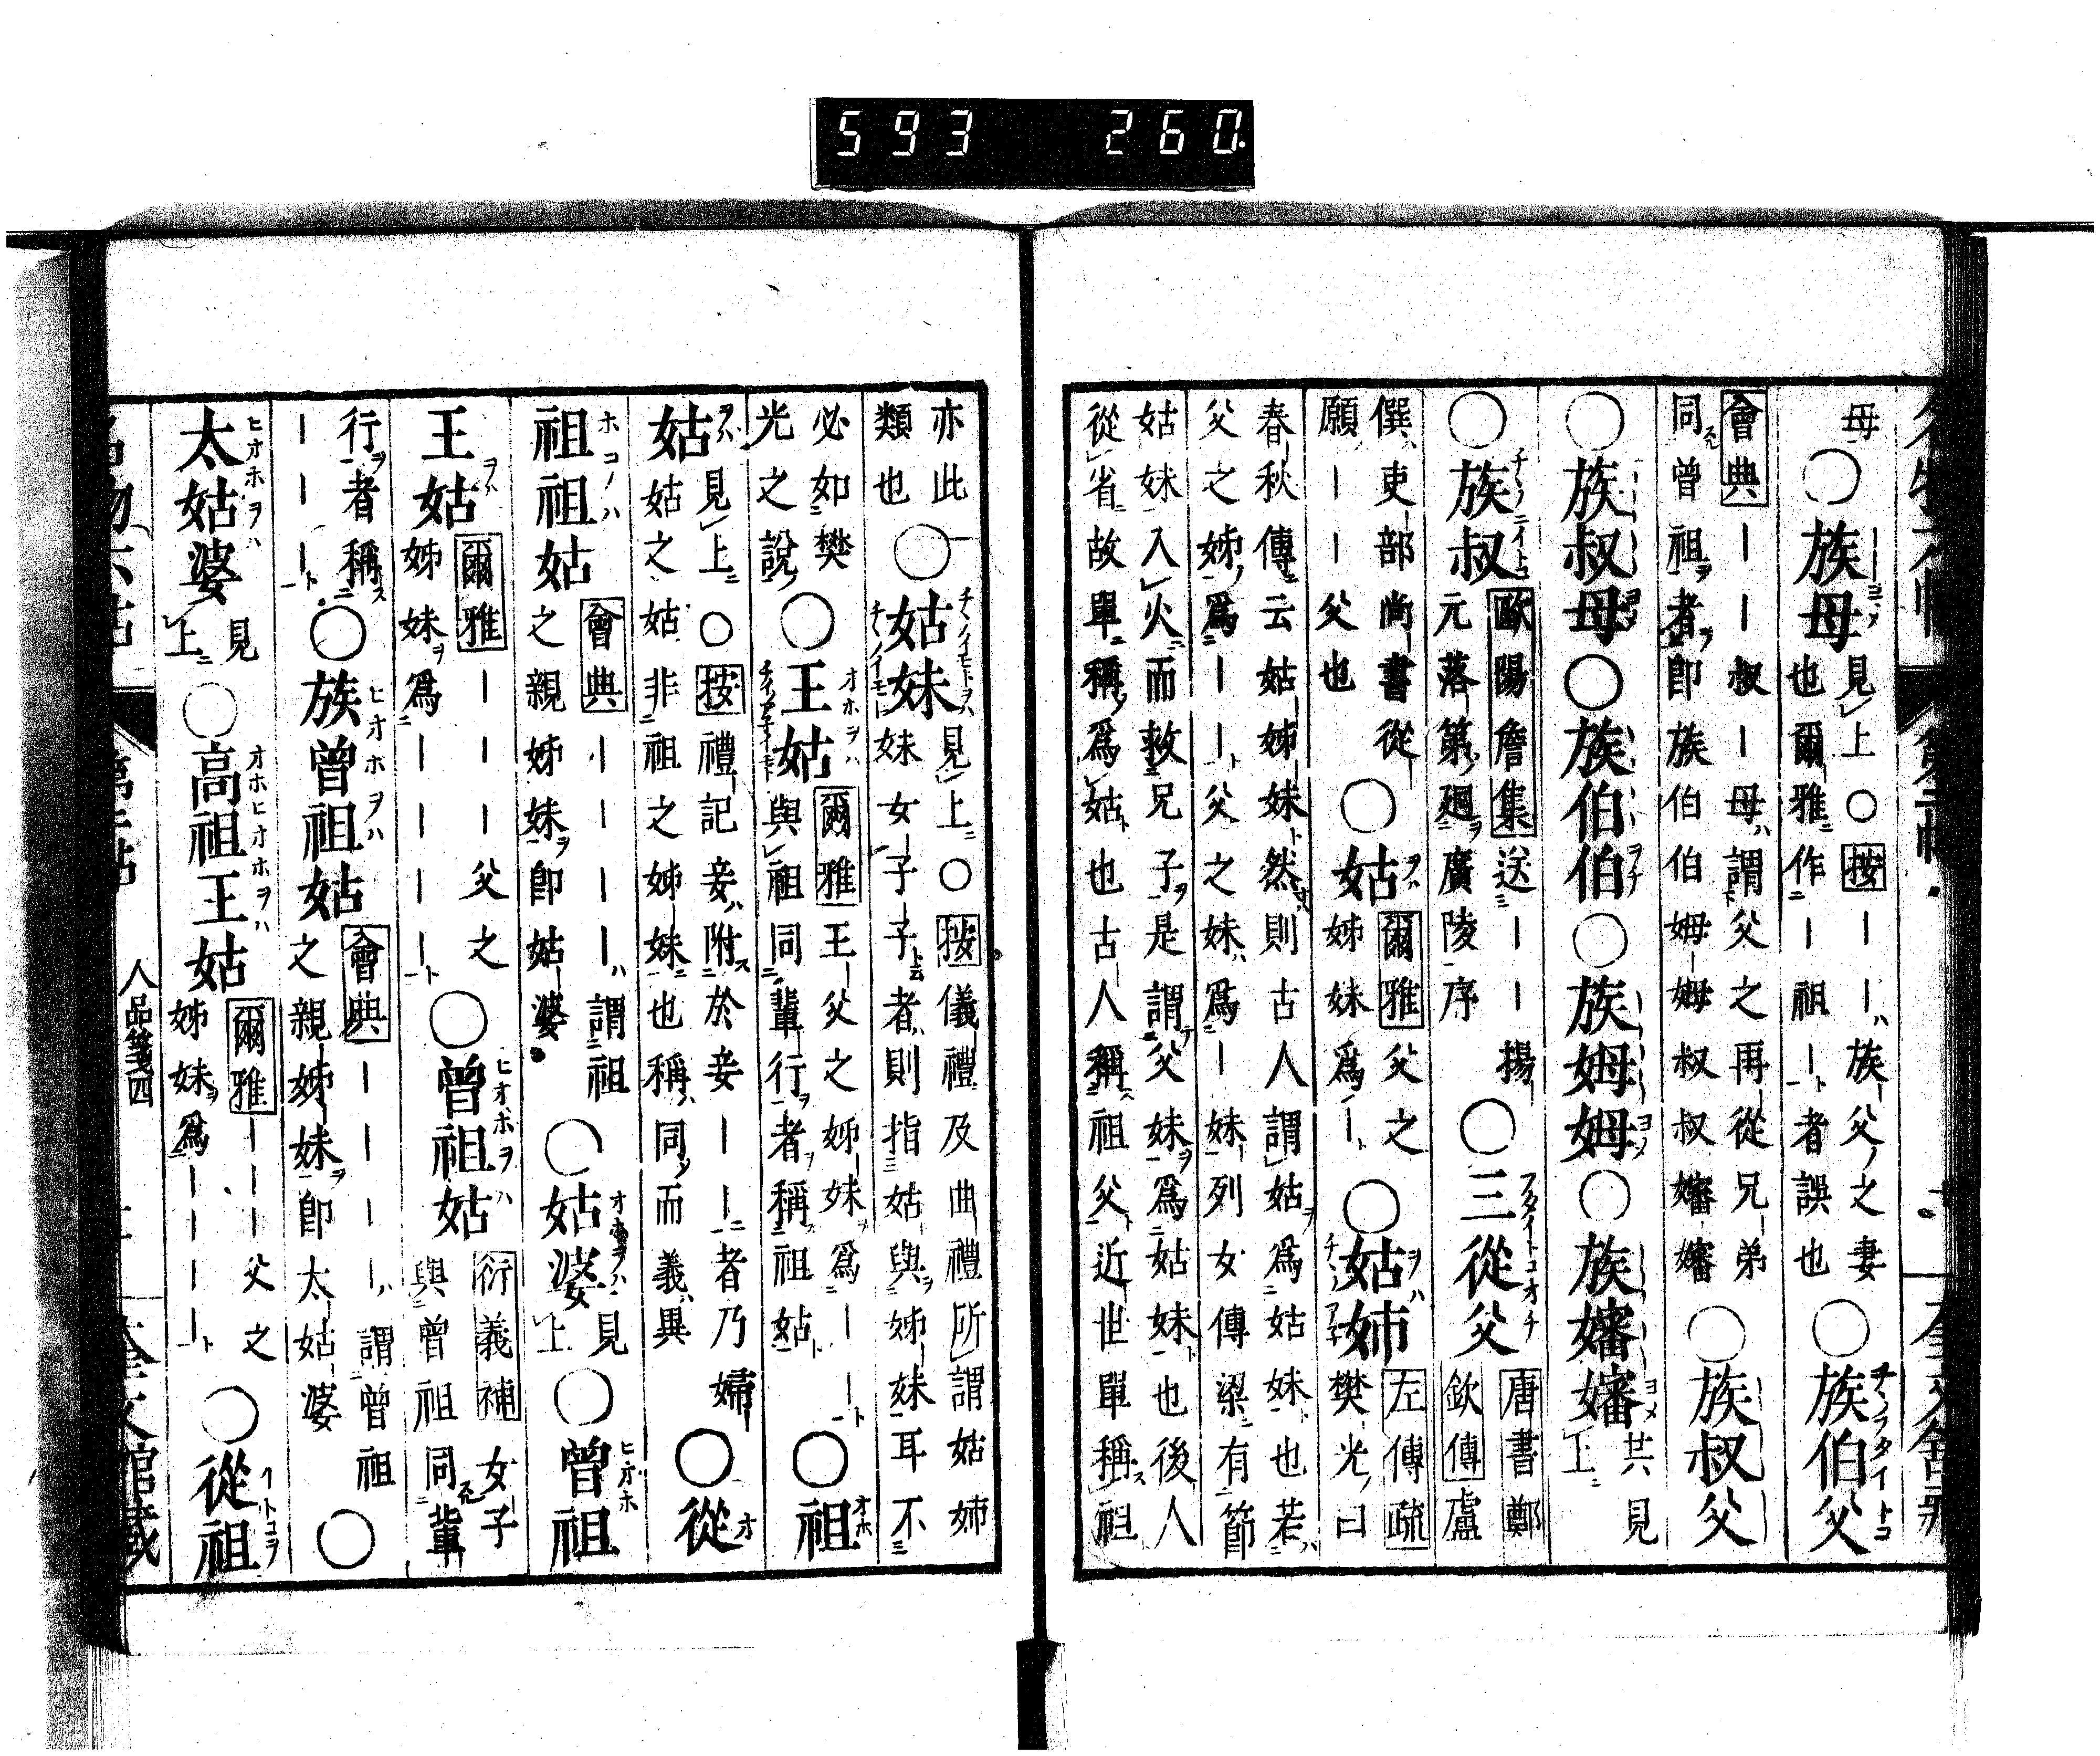 母○族母見上○按———族父之妻
也爾雅作—祖—者誤也○族伯父
會典——叔—母謂父之再從兄弟
同曾祖者即族伯伯姆姆叔叔嬸嬸○族叔父
○族叔母○族伯伯○族姆姆○族嬸嬸共見上
○族叔歐陽詹集送——楊
元落第廻廣陵序○三從父唐書鄭
欽傳盧
僎吏部尚書從
願——父也○姑爾雅父之
姊妹爲—○姑姉左傳疏
樊光曰
春秋傳云姑姊妹然則古人謂姑爲姑姊妹也若
父之姊爲——父之妹爲—妹列女傳梁有節
姑妹入火而救兄子是謂父妹爲姑妹也後人
從省故單稱爲姑也古人稱祖父近世單稱祖
亦此
類也○姑妹見上○按儀禮及曲禮所謂姑姉
妹女子子者則指姑與姊妹耳不
必如樊
光之說○王姑爾雅王父之姊妹爲——
與祖同輩行者稱祖姑○祖
姑見上○按禮記妾附於妾——者乃婦
姑之姑非祖之姊妹也稱同而義異○從
祖祖姑會典————謂祖
之親姊妹即姑婆○姑婆見上○曾祖
王姑爾雅———父之
姊妹爲————○曾祖姑衍義補女子
與曾祖同輩
行者稱
———○族曾祖姑會典————謂曾祖
之親姊妹即太姑婆○
太姑婆見上○高祖王姑爾雅———父之
姊妹爲————○從祖
人品箋四
593 260